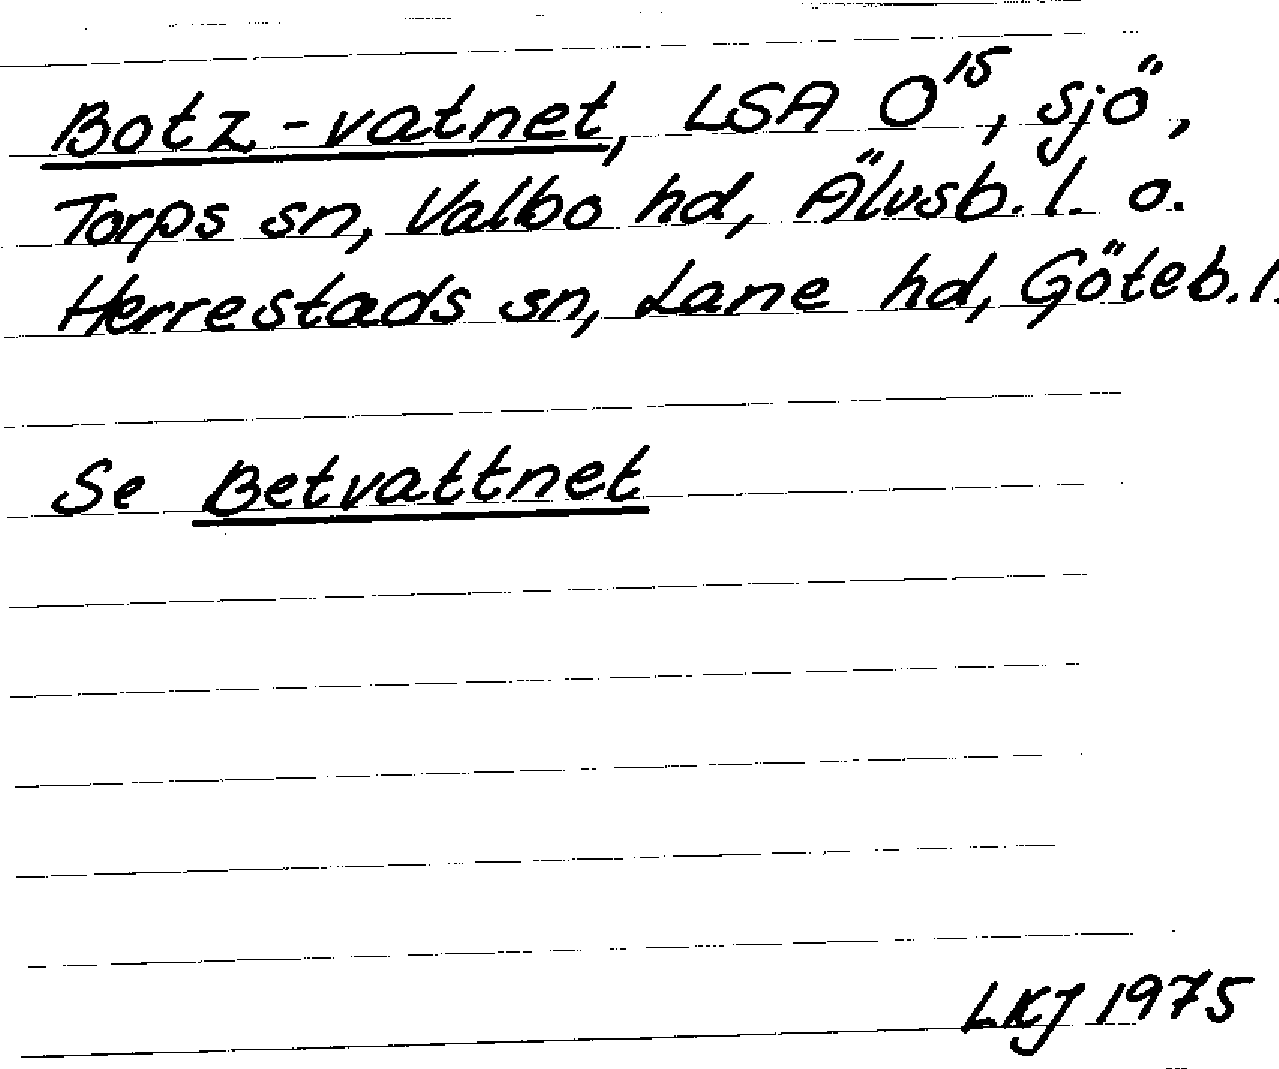 Botz-vatnet, LSA O¹⁵, sjö,
Torps sn, Valbo hd, Älvsb. l. o.
Herrestads sn, Lane hd, Göteb. l.
Se Betvattnet
LKJ 1975